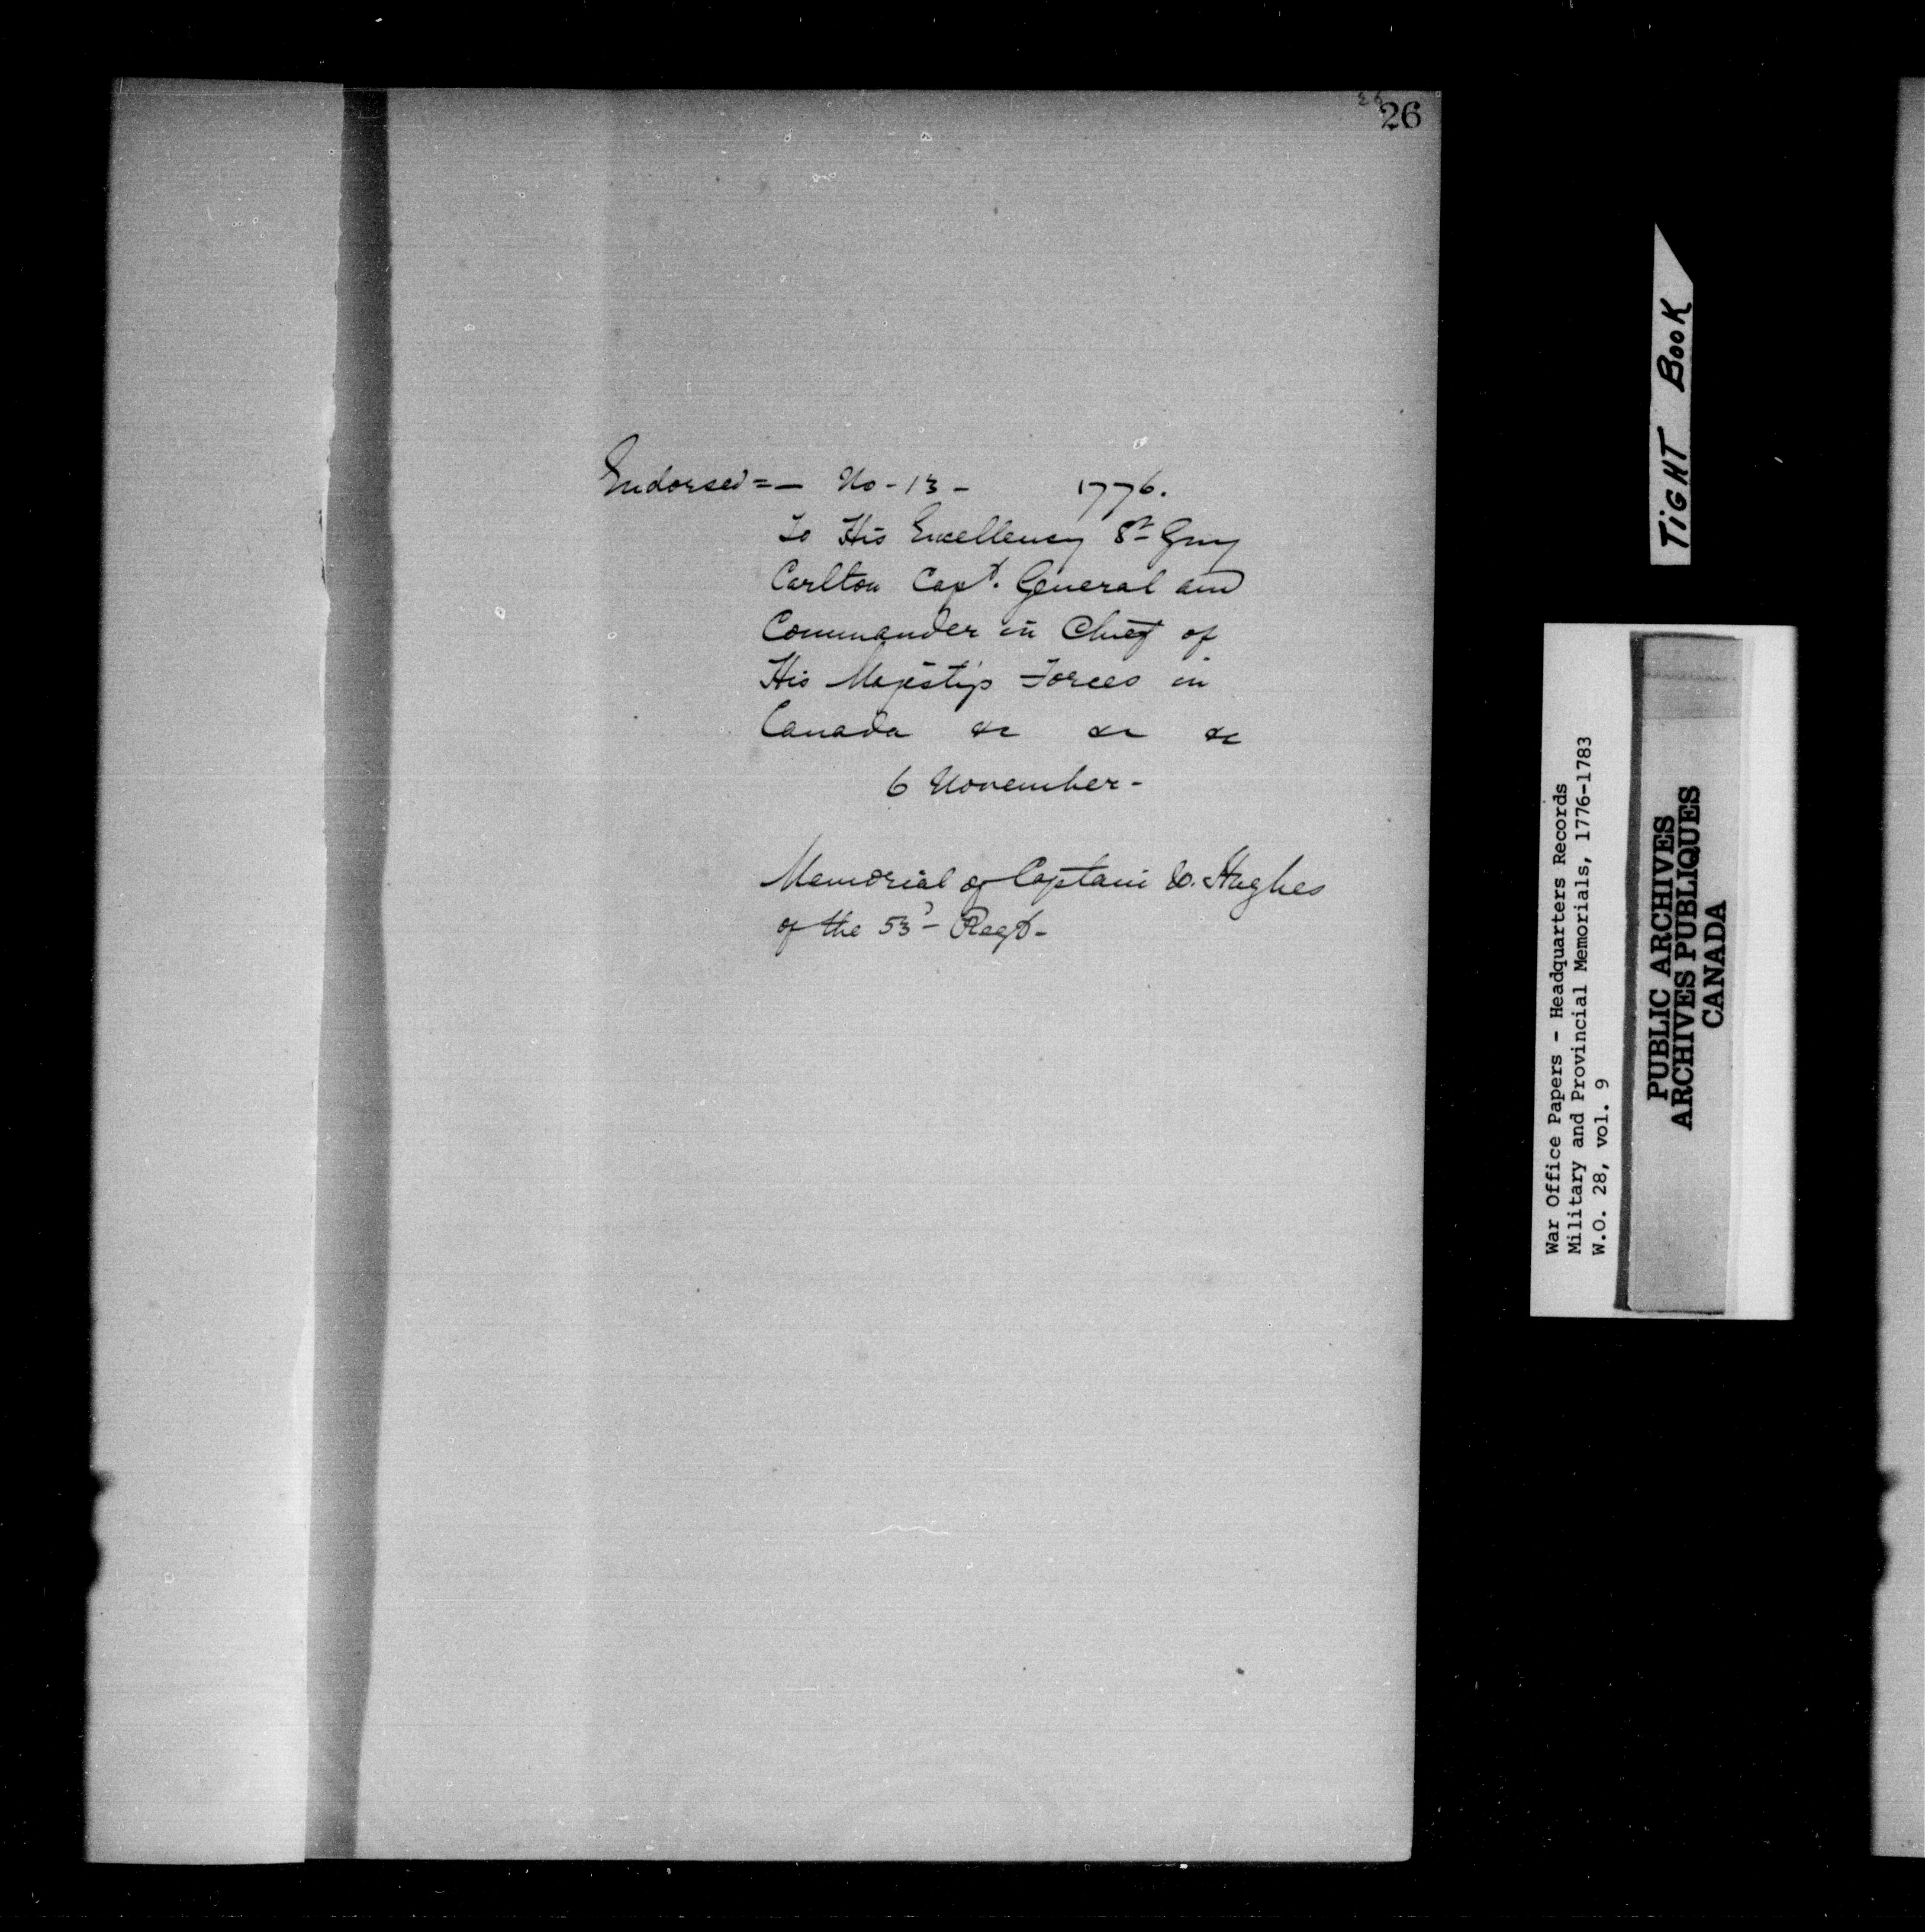 26
Endorsed = — No - 13 - 1776.
To His Excellency Sr Guy
Carlton Capt. General and
Commander in Chief of
His Majesty's Forces in
Canada &c &c &c
6 November -
Memorial of Captain W. Hughes
of the 53d - Regt -
TIGHT BOOK
War Office Papers - Headquarters Records
Military and Provincial Memorials, 1776-1783
W.O. 28, vol. 9
PUBLIC ARCHIVES
ARCHIVES PUBLIQUES
CANADA